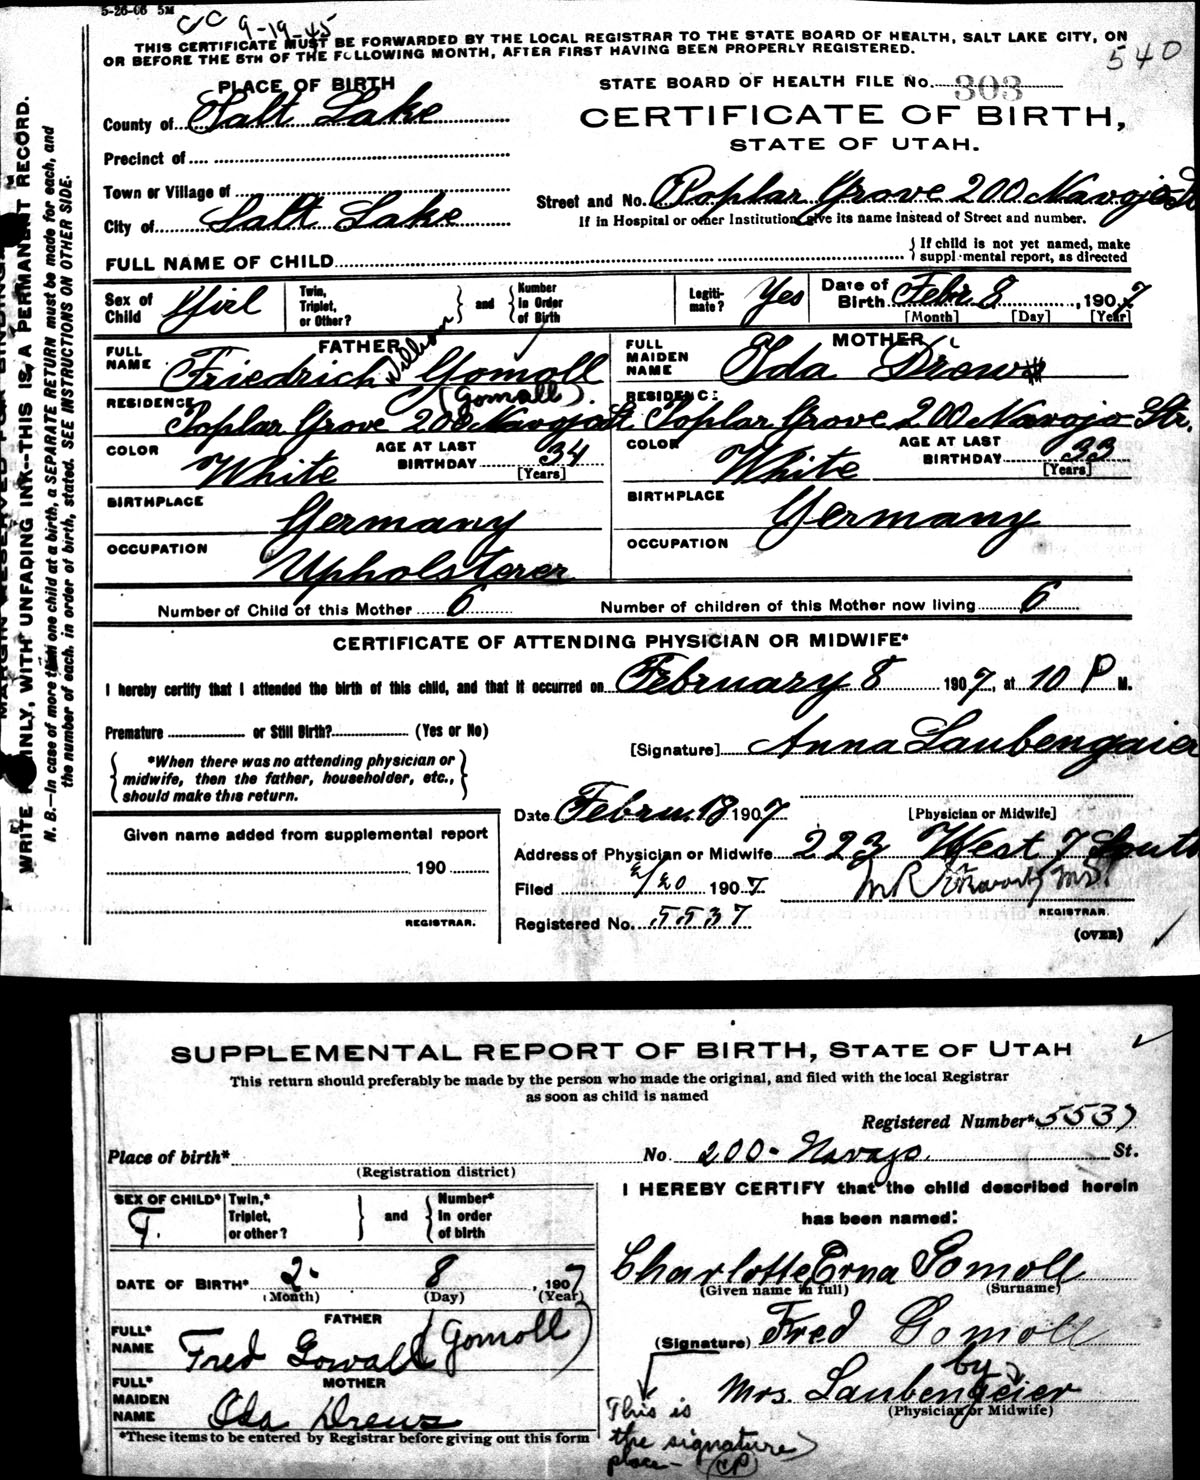 5-26-06 5M
CC 9-19-45
THIS CERTIFICATE MUST BE FORWARDED BY THE LOCAL REGISTRAR TO THE STATE BOARD OF HEALTH, SALT LAKE CITY, ON
OR BEFORE THE 5TH OF THE FOLLOWING MONTH, AFTER FIRST HAVING BEEN PROPERLY REGISTERED.
540
PLACE OF BIRTH
STATE BOARD OF HEALTH FILE No. 303
County of Salt Lake
CERTIFICATE OF BIRTH,
STATE OF UTAH.
Precinct of
Town or Village of
Street and No. Poplar Grove 200 Navajo St
City of Salt Lake
If in Hospital or other Institution, give its name instead of Street and number.
FULL NAME OF CHILD
If child is not yet named, make
supplemental report, as directed
Sex of Child Girl
Twin, Triplet, or Other? and Number in Order of Birth
Legitimate? Yes
Date of Birth Febr. 8, 1907
[Month] [Day] [Year]
FATHER
FULL NAME Friedrich William Gomoll
(Gomoll).
RESIDENCE Poplar Grove 200 Navajo St
COLOR White
AGE AT LAST BIRTHDAY 34
[Years]
BIRTHPLACE Germany
OCCUPATION Upholsterer
MOTHER
FULL MAIDEN NAME Ida Drews
RESIDENCE: Poplar Grove 200 Navajo Str.
COLOR White
AGE AT LAST BIRTHDAY 33
[Years]
BIRTHPLACE Germany
OCCUPATION
Number of Child of this Mother 6
Number of children of this Mother now living 6
CERTIFICATE OF ATTENDING PHYSICIAN OR MIDWIFE*
I hereby certify that I attended the birth of this child, and that it occurred on February 8 1907, at 10 P M.
Premature or Still Birth? (Yes or No)
[Signature] Anna Laubengaier
*When there was no attending physician or
midwife, then the father, householder, etc.,
should make this return.
Date Febru. 18 1907
[Physician or Midwife]
Given name added from supplemental report
190
REGISTRAR.
Address of Physician or Midwife 223 West 7 South
Filed 2/20 1907
REGISTRAR.
Registered No. 5537
(OVER)
WRITE PLAINLY, WITH UNFADING INK--THIS IS A PERMANENT RECORD.
N. B.--In case of more than one child at a birth, a SEPARATE RETURN must be made for each, and
the number of each, in order of birth, stated. SEE INSTRUCTIONS ON OTHER SIDE.
SUPPLEMENTAL REPORT OF BIRTH, STATE OF UTAH
This return should preferably be made by the person who made the original, and filed with the local Registrar
as soon as child is named
Registered Number* 5537
Place of birth* No. 200 - Navajo St.
(Registration district)
SEX OF CHILD* F.
Twin,* Triplet, or other? and Number* in order of birth
DATE OF BIRTH* 2- 8, 1907
(Month) (Day) (Year)
FATHER
FULL* NAME Fred Gowall (Gomoll)
MOTHER
FULL* MAIDEN NAME Ida Drews
*These items to be entered by Registrar before giving out this form
I HEREBY CERTIFY that the child described herein
has been named:
Charlotte Erna Gomoll
(Given name in full) (Surname)
(Signature) Fred Gomoll
by
Mrs. Laubengeier
(Physician or Midwife)
This is
the signature
place- CP